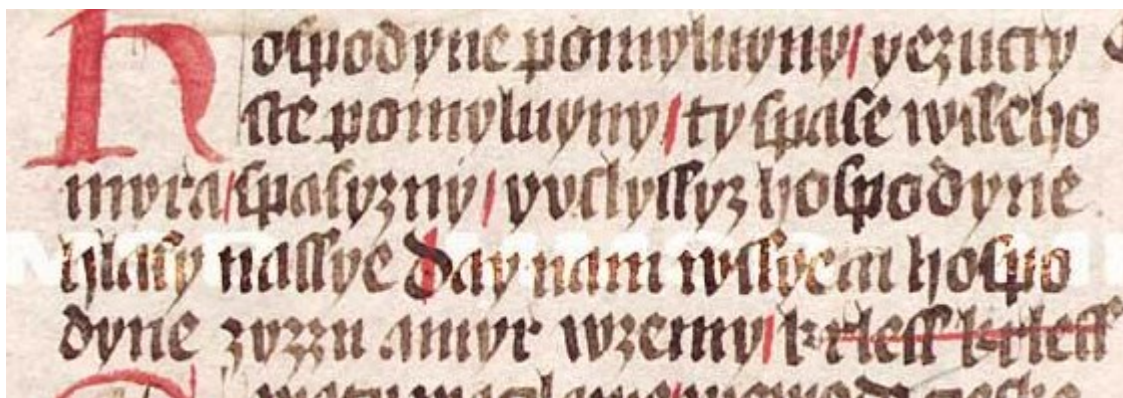 Hoſpodyne pomyluyny / yezucry
ſte pomyluyny / ty ſpaſe wſſeho
myra / ſpaſyzny / yvſlyſſyz hoſpodyne
hlaſy naſſye day nam wſſyem hoſpo
dyne zyzzn amyr wzemy / krleſſ krleſſ